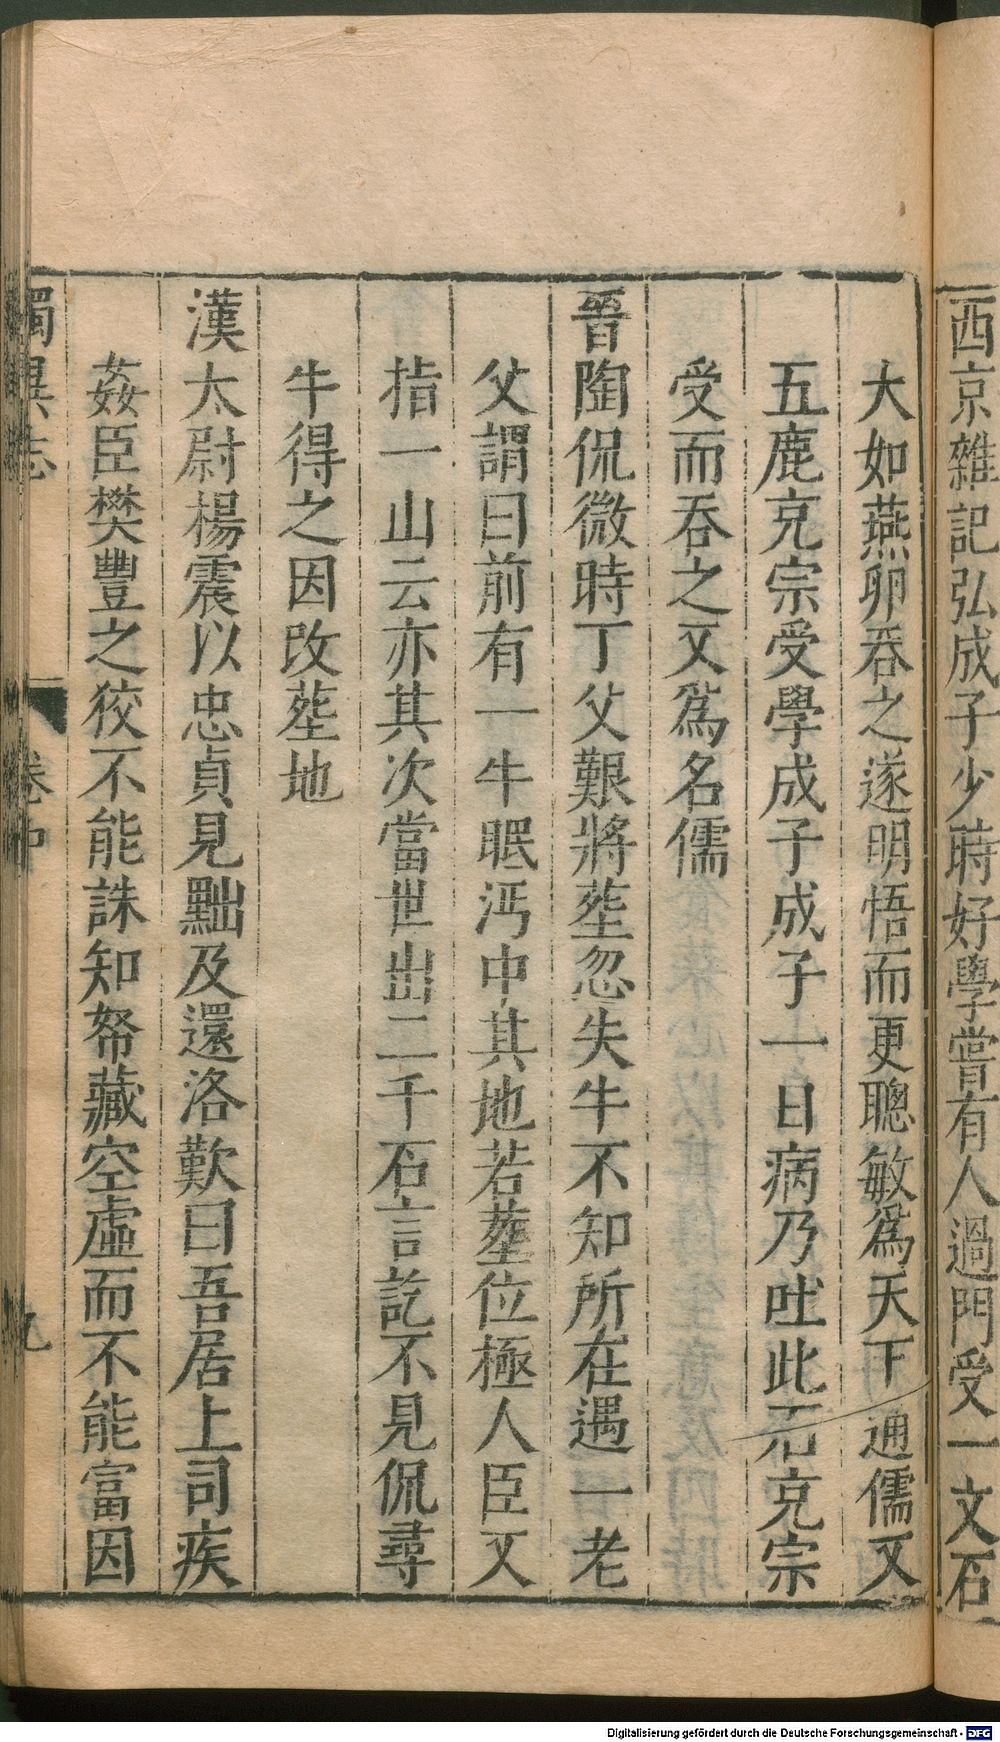 西京雜記弘成子少時好學嘗有人過門受一文石
大如燕卵吞之遂明悟而更聰敏爲天下通儒又
五鹿克宗受學成子成子一日病乃吐此石克宗
受而吞之又爲名儒
晉陶侃微時丁父艱將塟忽失牛不知所在遇一老
父謂曰前有一牛眠沔中其地若塟位極人臣又
指一山云亦其次當世出二千石言訖不見侃尋
牛得之因改塟地
漢太尉楊震以忠貞見黜及還洛歎曰吾居上司疾
姦臣樊豐之狡不能誅知帑藏空虛而不能富因
獨異志
卷中
九
Digitalisierung gefördert durch die Deutsche Forschungsgemeinschaft - DFG